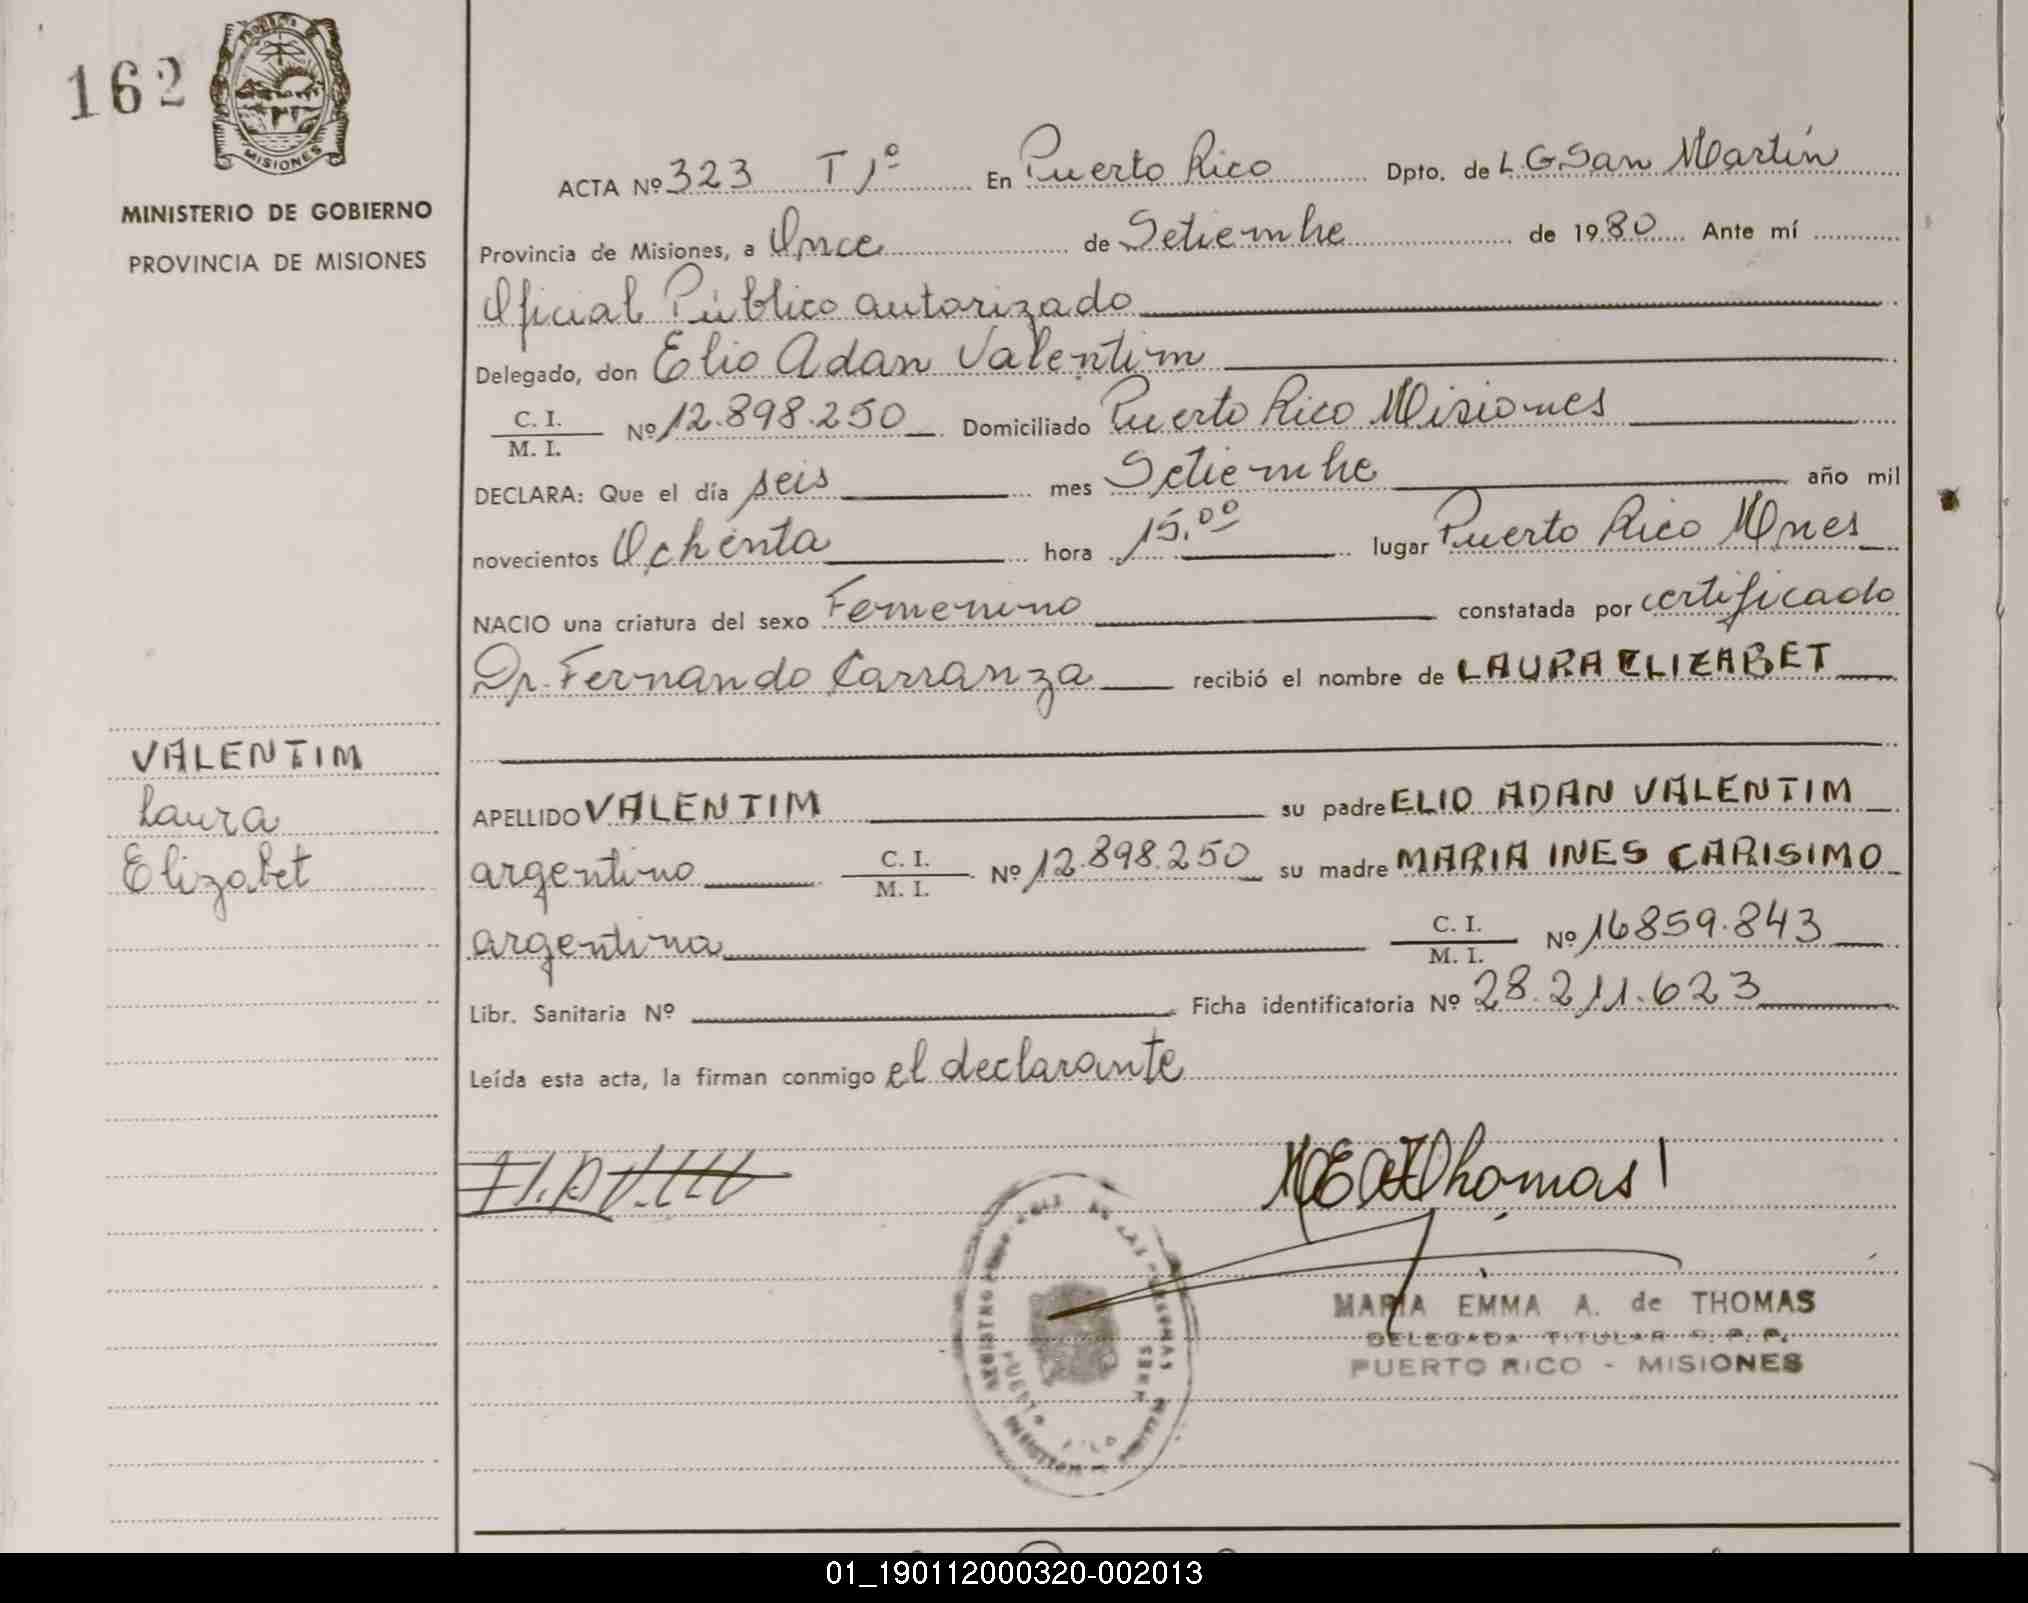 162
MISIONES
MINISTERIO DE GOBIERNO
PROVINCIA DE MISIONES
ACTA Nº 323 T 1º En Puerto Rico Dpto. de L.G.San Martín
Provincia de Misiones, a Once de Setiembre de 1980 Ante mí
Oficial Público autorizado
Delegado, don Elio Adan Valentim
C. I. / M. I. Nº 12.898.250 Domiciliado Puerto Rico Misiones
DECLARA: Que el día seis mes Setiembre año mil
novecientos Ochenta hora 15,00 lugar Puerto Rico Mnes
NACIO una criatura del sexo Femenino constatada por certificado
Dr. Fernando Carranza recibió el nombre de LAURA ELIZABET
VALENTIM
Laura
Elizabet
APELLIDO VALENTIM su padre ELIO ADAN VALENTIM
argentino C. I. / M. I. Nº 12.898.250 su madre MARIA INES CARISIMO
argentina C. I. / M. I. Nº 16859.843
Libr. Sanitaria Nº Ficha identificatoria Nº 28.211.623
Leída esta acta, la firman conmigo el declarante
Thomas
MARIA EMMA A. de THOMAS
DELEGADA TITULAR R. P. P.
PUERTO RICO - MISIONES
REGISTRO DE LAS PERSONAS
PUERTO RICO MNES
01_190112000320-002013